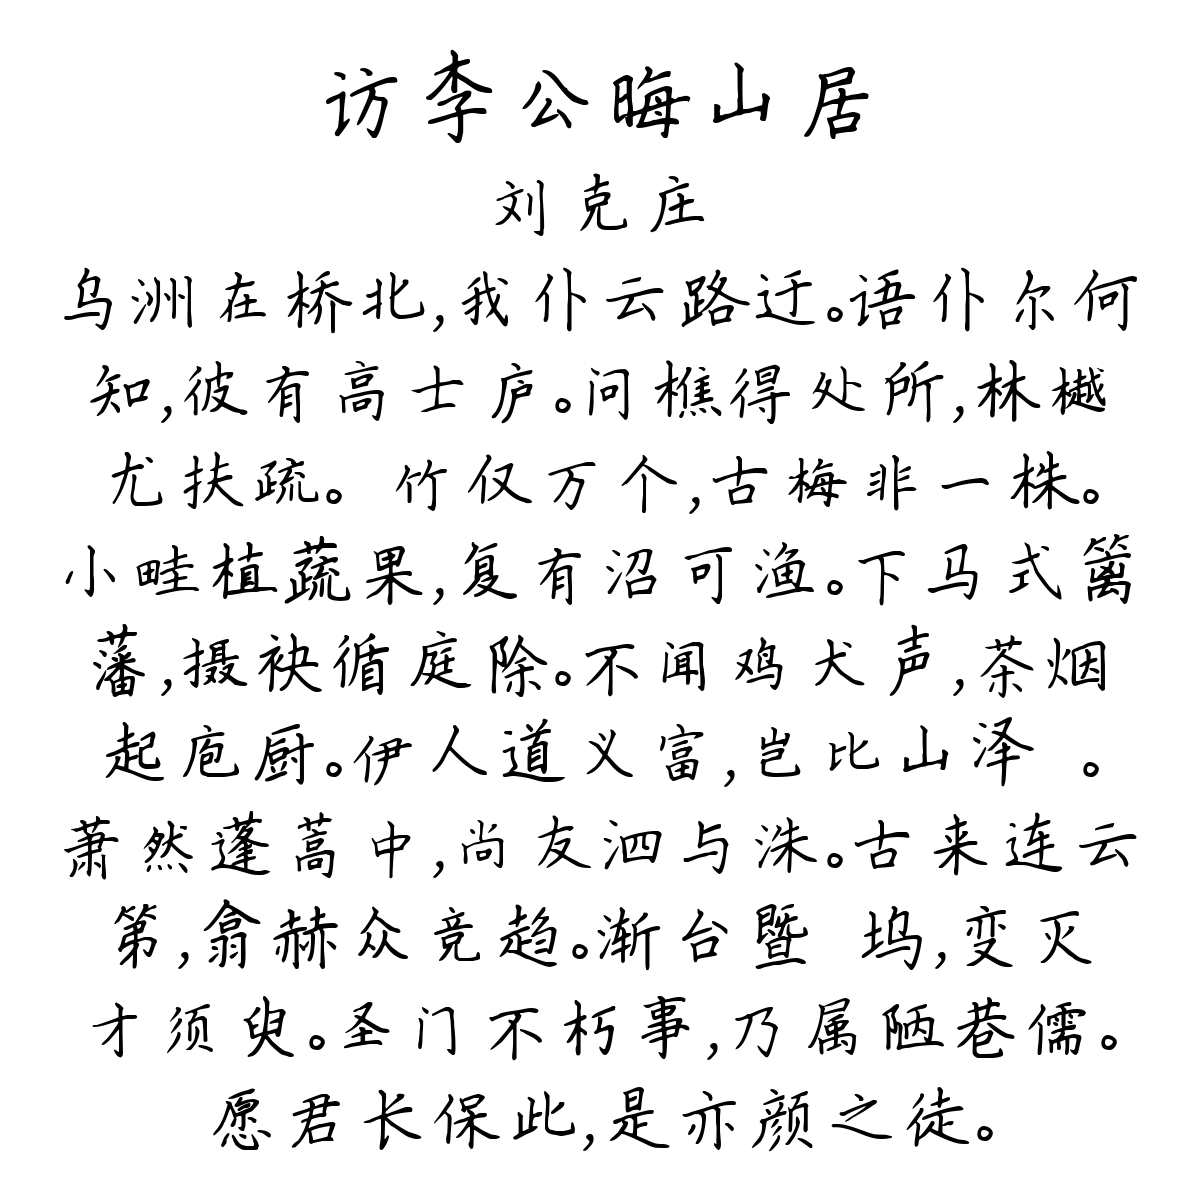 访李公晦山居
刘克庄
乌洲在桥北,我仆云路迂。语仆尔何
知,彼有高士庐。问樵得处所,林樾
尤扶疏。竹仅万个,古梅非一株。
小畦植蔬果,复有沼可渔。下马式篱
藩,摄袂循庭除。不闻鸡犬声,茶烟
起庖厨。伊人道义富,岂比山泽 。
萧然蓬蒿中,尚友泗与洙。古来连云
第,翕赫众竞趋。渐台暨 坞,变灭
才须臾。圣门不朽事,乃属陋巷儒。
愿君长保此,是亦颜之徒。